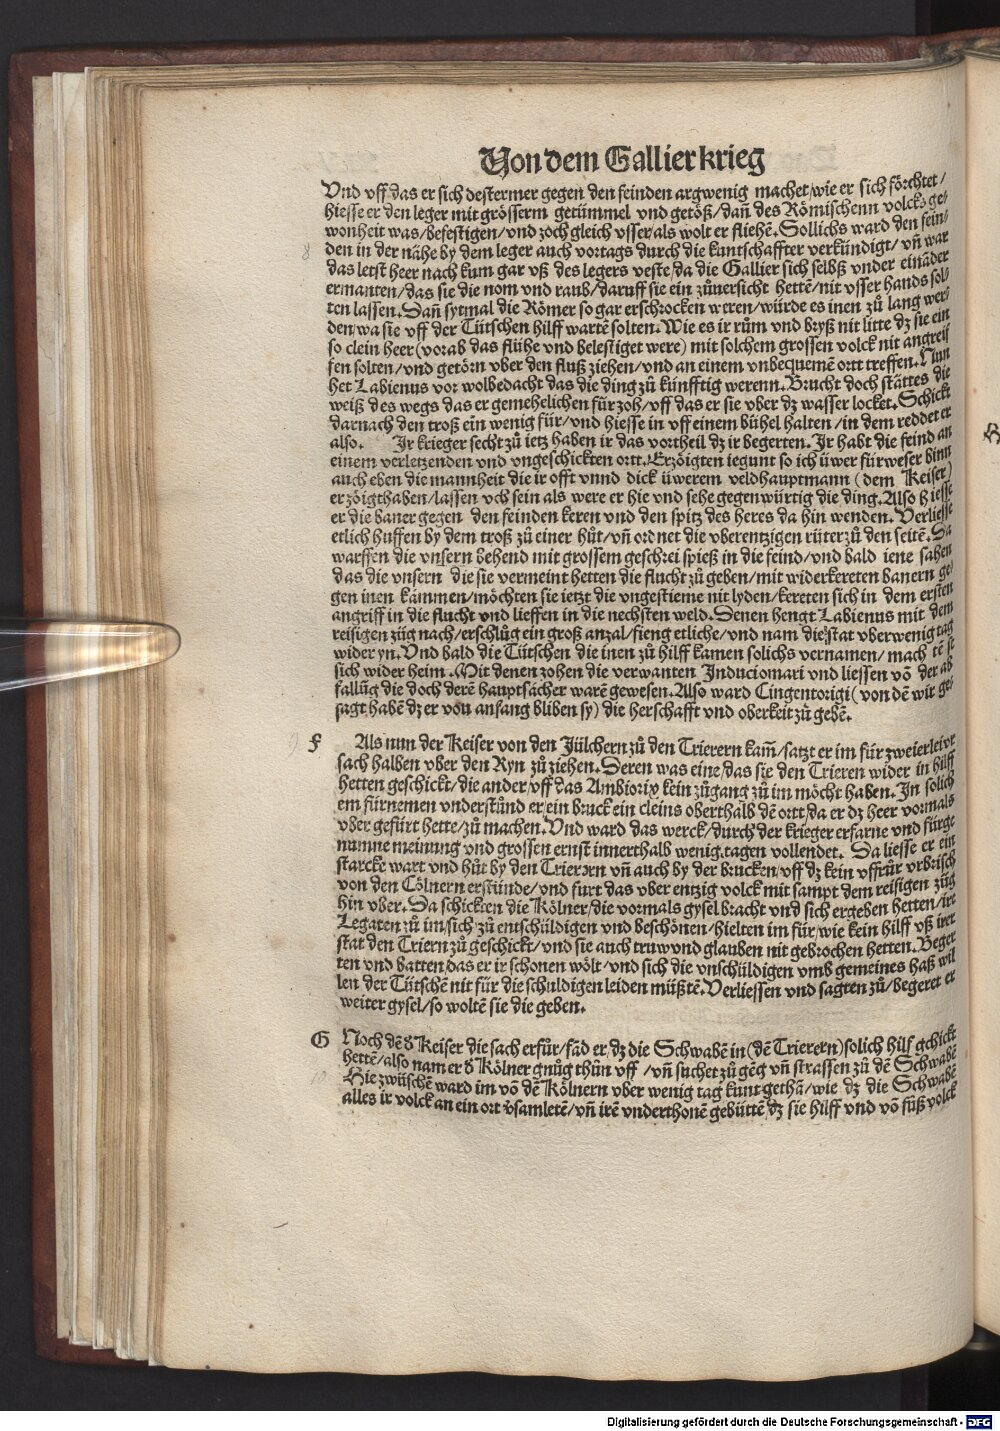 Von dem Gallier krieg
Vnd vff das er sich destermer gegen den feinden argwenig machet/wie er sich förchtet/
hiesse er den leger mit grösserm getümmel vnd getöß/dañ des Römischenn volcks ge⸗
wonheit was/befestigen/vnd zoch gleich vsser als wolt er fliehẽ. Sollichs ward den fein⸗
8 den in der nähe by dem leger auch vortags durch die kuntschaffter verkündigt/ vñ war
das letst heer nach kum gar vß des legers veste/da die Gallier sich selbß vnder einãder
ermanten/das sie die nom vnd raub/daruff sie ein zůuersicht hettẽ/nit vsser hands sol⸗
ten lassen. Dañ sytmal die Römer so gar erschrocken weren/würde es inen zů lang wer⸗
den/wa sie vff der Tütschen hilff wartẽ solten. Wie es ir rům vnd bryß nit litte dz sie ein
so clein heer (vorab das flühe vnd belestiget were) mit solchem grossen volck nit angreif
fen solten/vnd getörn vber den fluß ziehen/vnd an einem vnbequemẽ ortt treffen. Nun
het Labienus vor wolbedacht das die ding zů künfftig werenn. Brucht doch stättes die
weiß des wegs das er gemehelichen für zoh/vff das er sie vber dz wasser locket. Schickt
darnach den troß ein wenig für/vnd hiesse in vff einem bühel halten/in dem reddet er
also. Ir krieger secht zů ietz haben ir das vortheil dz ir begerten. Ir habt die feind an
einem verletzenden vnd vngeschickten ortt. Erzöigten iegunt so ich üwer fürweser binn
auch eben die mannheit die ir offt vnnd dick üwerem veldhauptmann (dem Keiser)
erzöigthaben/lassen vch sein als were er hie vnd sehe gegenwürtig die ding. Also hiesse
er die baner gegen den feinden keren vnd den spitz des heres da hin wenden. Verliesse
etlich huffen by dem troß zů einer hůt/vñ ordnet die vberentzigen rüter zů den seitẽ. Da
warffen die vnsern behend mit grossem geschrei spieß in die feind/vnd bald iene sahen
das die vnsern die sie vermeint hetten die flucht zů geben/mit widerkereten banern ge
gen inen kämmen/möchten sie ietzt die vngestieme nit lyden/kereten sich in dem ersten
angriff in die flucht vnd lieffen in die nechsten weld. Denen hengt Labienus mit dem
reisigen züg nach/erschlůg ein groß anzal/fieng etliche/vnd nam die stat vber wenig tag
wider yn. Vnd bald die Tütschen die inen zů hilff kamen solichs vernamen/ machtẽ sie
sich wider heim. Mit denen zohen die verwanten Induciomari vnd liessen võ der ab
fallũg die doch derẽ hauptsächer warẽ gewesen. Also ward Cingentorigi (von dẽ wir ge⸗
sagt habẽ dz er von anfang bliben sy) die herschafft vnd oberkeit zů gebẽ.
9 F Als nun der Keiser von den Jülchern zů den Trierern kam̃/satzt er im für zweierleivr
sach halben vber den Ryn zů ziehen. Deren was eine/das sie den Trieren wider in hilff
hetten geschickt/die ander/vff das Ambiorix kein zůgang zů im möcht haben. In solich
em fürnemen vnderstůnd er ein bruck ein cleins oberthalb dẽ ortt/da er dz heer vormals
vber gefürt hette/zů machen. Vnd ward das werck/durch der krieger erfarne vnd fürge
numne meinung vnd grossen ernst innerthalb wenig tagen vollendet. Da liesse er ein
starcke wart vnd hůt by den Trierern vñ auch by der brucken/vff dz kein vffrůr vrbrisch
von den Cölnern erstünde/vnd furt das vber entzig volck mit sampt dem reisigen züg
hin vber. Da schickten die Kölner/die vormals gysel bracht vnd sich ergeben hetten/ire
Legaten zů im/sich zů entschüldigen vnd beschönen/hielten im für/wie kein hilff vß irer
stat den Triern zů geschickt/vnd sie auch truw vnd glauben nit gebrochen hetten. Beger
ten vnd batten/das er ir schonen wölt/vnd sich die vnschüldigen vmb gemeines haß wil
len der Tütschẽ nit für die schuldigen leiden müßtẽ. Verliessen vnd sagten zů/begeret er
weiter gysel/so woltẽ sie die geben.
G Noch dẽ d Keiser die sach erfůr/fãd er/dz die Schwabẽ in (dẽ Trierern) solich hilf gschickt
hettẽ/also nam er d Kölner gnůg thůn vff /vñ suchet zů gẽg vñ strassen zů dẽ Schwabẽ
10 Hie zwüschẽ ward im võ dẽ Kölnern vber wenig tag kunt gethã/wie dz die Schwabẽ
alles ir volck an ein ort vsamletẽ/vñ irẽ vnderthonẽ gebüttẽ/dz sie hilff vnd võ füß volck
Digitalisierung gefördert durch die Deutsche Forschungsgemeinschaft - DFG